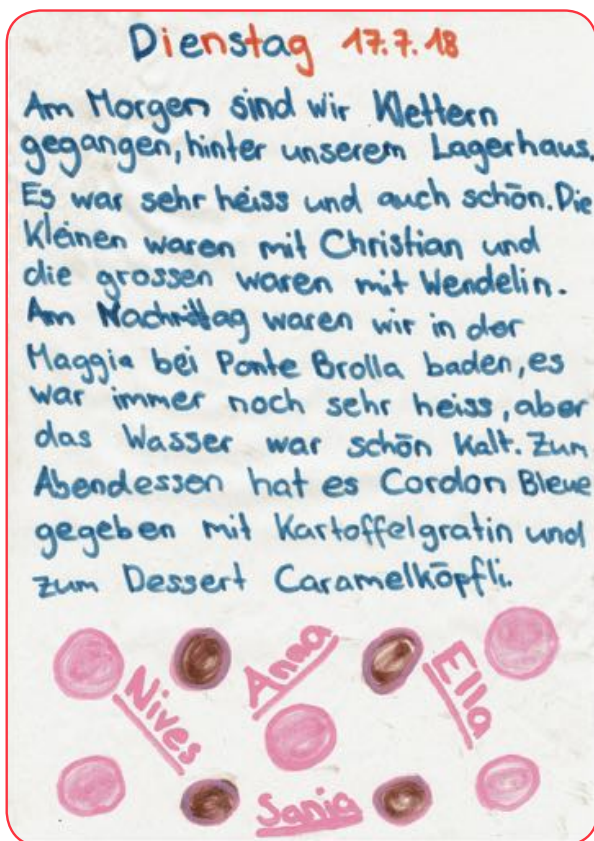 Dienstag 17.7.18
Am Morgen sind wir Klettern
gegangen, hinter unserem Lagerhaus.
Es war sehr heiss und auch schön. Die
Kleinen waren mit Christian und
die grossen waren mit Wendelin.
Am Nachmittag waren wir in der
Maggia bei Ponte Brolla baden, es
war immer noch sehr heiss, aber
das Wasser war schön kalt. Zum
Abendessen hat es Cordon Bleue
gegeben mit Kartoffelgratin und
zum Dessert Caramelköpfli.
Nives
Anna
Ella
Sania